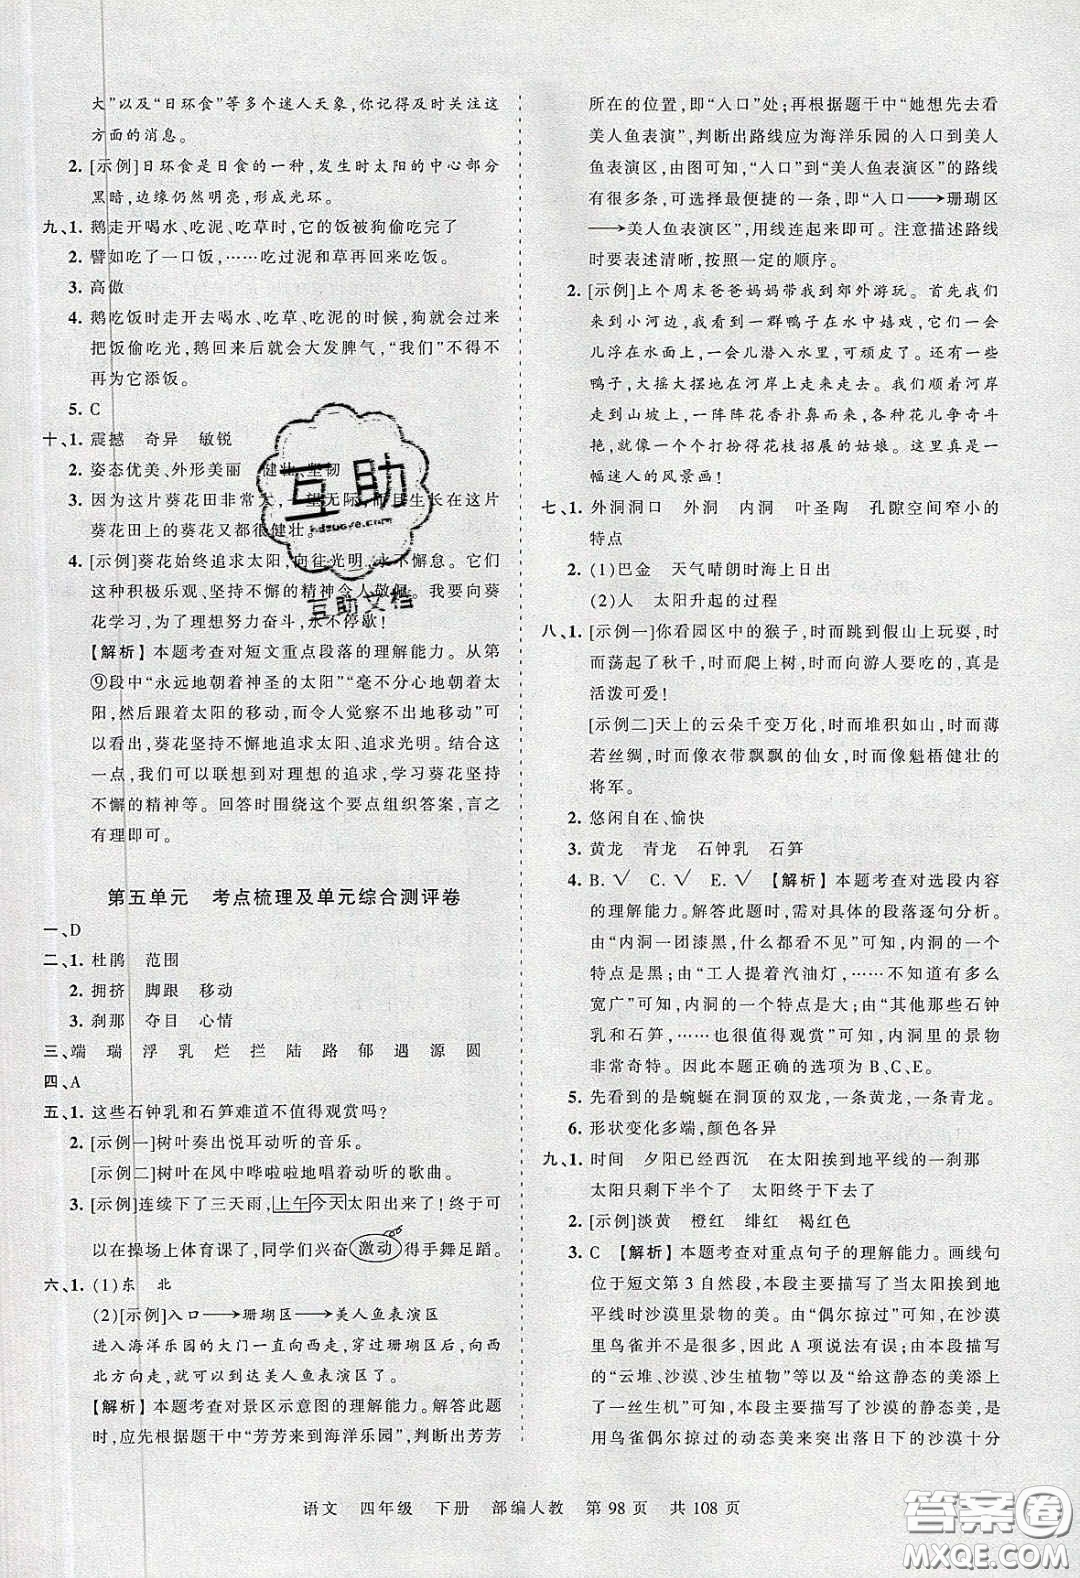 大”以及“日环食”等多个迷人天象,你记得及时关注这
方面的消息。
2. [示例]日环食是日食的一种,发生时太阳的中心部分
黑暗,边缘仍然明亮,形成光环。
九、1. 鹅走开喝水、吃泥、吃草时,它的饭被狗偷吃完了
2. 譬如吃了一口饭,……去吃过泥和草再回来吃饭。
3. 高傲
4. 鹅吃饭时走开去喝水、吃草、吃泥的时候,狗就会走过来
把饭偷吃光,鹅回来后就会大发脾气,“我们”不得不
再为它添饭。
5. C
十、1. 震撼 奇异 敏锐
2. 姿态优美、外形美丽 健壮、坚韧
3. 因为这片葵花田非常大,一望无际,而且生长在这片
葵花田上的葵花又都很健壮。
4. [示例]葵花始终追求太阳,向往光明,永不懈怠。它
们这种积极乐观、坚持不懈的精神令人敬佩。我要向葵
花学习,为了理想努力奋斗,永不停歇!
【解析】本题考查对短文重点段落的理解能力。从第
⑨段中“永远地朝着神圣的太阳”“毫不分心地朝着太
阳,然后跟着太阳的移动,而令人觉察不出地移动”可
以看出,葵花坚持不懈地追求太阳、追求光明。结合这
一点,我们可以联想到对理想的追求,学习葵花坚持
不懈的精神等。回答时围绕这个要点组织答案,言之
有理即可。
第五单元 考点梳理及单元综合测评卷
一、D
二、1. 杜鹃 范围
2. 拥挤 脚跟 移动
3. 刹那 夺目 心情
三、端 瑞 浮 乳 烂 拦 陆 路 郁 遇 源 圆
四、A
五、1. 这些石钟乳和石笋难道不值得观赏吗?
2. [示例一]树叶奏出悦耳动听的音乐。
[示例二]树叶在风中哗啦啦地唱着动听的歌曲。
3. [示例]连续下了三天雨,上午今天太阳出来了!终于可
以在操场上体育课了,同学们兴奋激动得手舞足蹈。
六、1. (1)东 北
(2)[示例]入口——→珊瑚区——→美人鱼表演区
进入海洋乐园的大门一直向西走,穿过珊瑚区再向西
北方向走,就可以到达美人鱼表演区了。
【解析】本题考查对景区示意图的理解能力。解答此题
时,应先根据题干中“芳芳来到海洋乐园”,判断出芳芳
所在的位置,即“入口”处;再根据题干中“她想先去看
美人鱼表演”,判断出路线应为海洋乐园的入口到美人
鱼表演区,由图可知,“入口”到“美人鱼表演区”的路线
有许多,可选择最便捷的一条,即“入口——→珊瑚区
——→美人鱼表演区”,用线连起来即可。注意描述路线
时要表述清晰,按照一定的顺序。
2. [示例]上个周末爸爸妈妈带我到郊外游玩。首先我们
来到小河边,我看到一群鸭子在水中嬉戏,它们一会
儿浮在水面上,一会儿潜入水里,可顽皮了。还有一些
鸭子,大摇大摆地在河岸上走来走去。我们顺着河岸
走到山坡上,一阵阵花香扑鼻而来,各种花儿争奇斗
艳,就像一个个打扮得花枝招展的姑娘。这里真是一
幅迷人的风景画!
七、1. 外洞洞口 外洞 内洞 叶圣陶 孔隙空间窄小的
特点
2. (1)巴金 天气晴朗时海上日出
(2)人 太阳升起的过程
八、1. [示例一]你看园区中的猴子,时而跳到假山上玩耍,时
而荡起了秋千,时而爬上树,时而向游人要吃的,真是
活泼可爱!
[示例二]天上的云朵千变万化,时而堆积如山,时而薄
若丝绸,时而像衣带飘飘的仙女,时而像魁梧健壮的
将军。
2. 悠闲自在、愉快
3. 黄龙 青龙 石钟乳 石笋
4. B. √ C. √ E. √ 【解析】本题考查对选段内容
的理解能力。解答此题时,应找出具体的段落逐句分析。
由“内洞一团漆黑,什么都看不见”可知,内洞的一个
特点是黑;由“工人提着汽油灯,……不知道有多么
宽广”可知,内洞的一个特点是大;由“其他那些石钟
乳和石笋,……也很值得观赏”可知,内洞里的景物
非常奇特。因此本题正确的选项为B、C、E。
5. 先看到的是蜿蜒在洞顶的双龙,一条黄龙,一条青龙。
6. 形状变化多端,颜色各异
九、1. 时间 夕阳已经西沉 在太阳挨到地平线的一刹那
太阳只剩下半个了 太阳终于下去了
2. [示例]淡黄 橙红 绯红 褐红色
3. C 【解析】本题考查对重点句子的理解能力。画线句
位于短文第3自然段,本段主要描写了当太阳挨到地
平线时沙漠里景物的美。由“偶尔掠过”可知,在沙漠
里鸟雀并不多见,因此A项说法有误;由本段中出现
的“云堆、沙漠、沙生植物”等景物和“给这静态的美添
了一丝生机”可知,本段主要描写了沙漠的静态美,是
用鸟雀偶尔掠过的动态美来突出落日下的沙漠十分
语文 四年级 下册 部编人教 第98页 共108页
互助
hdzuoye.com
互助文档
答案圈
MXQE.COM